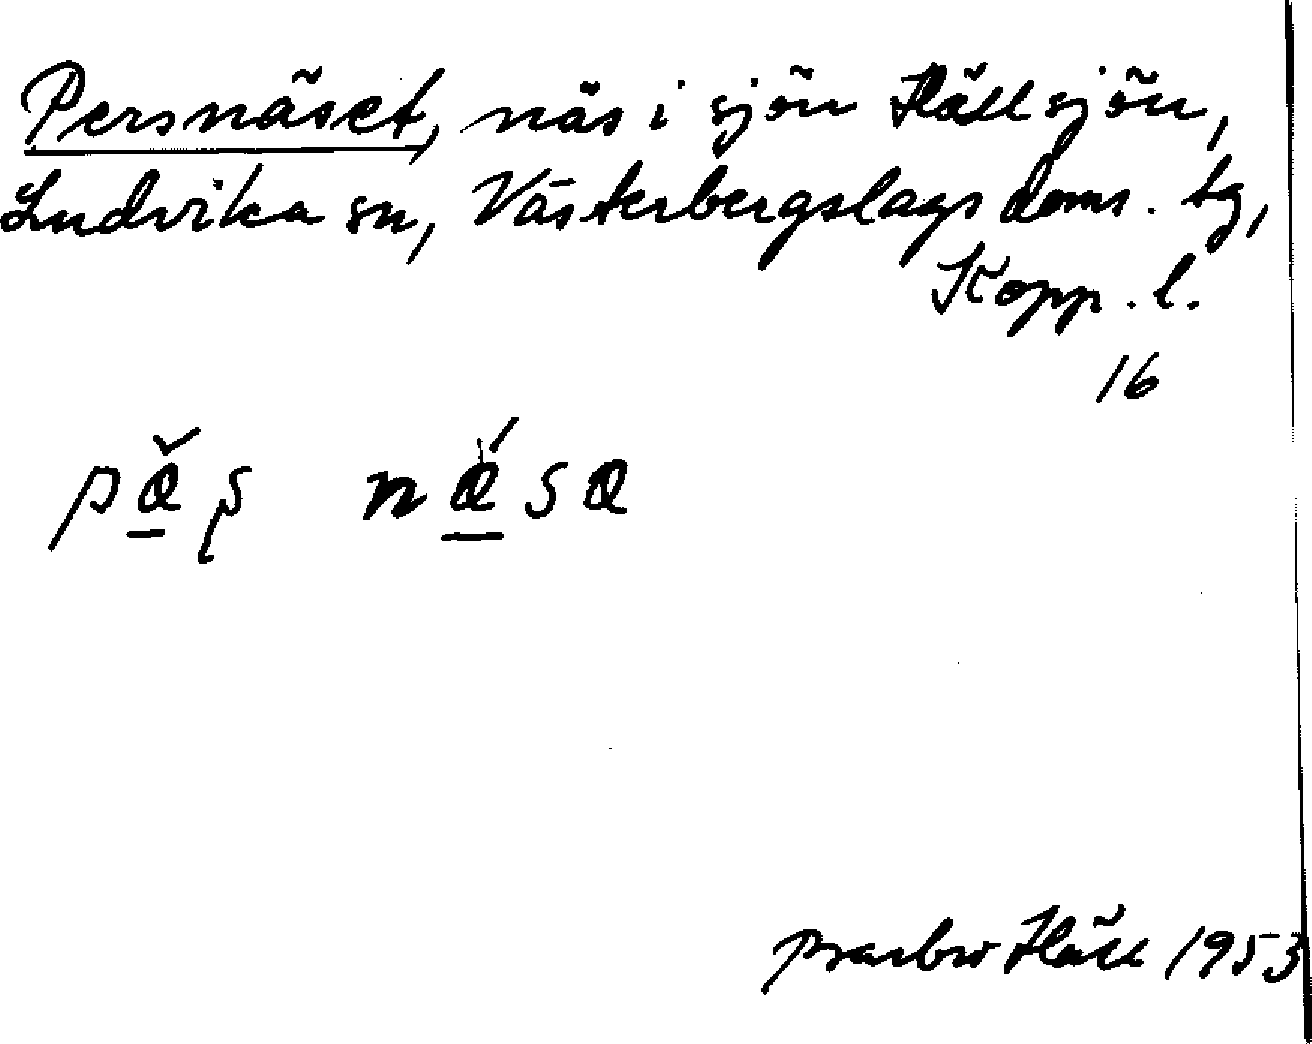 Persnäset, näs i sjön Hällsjön,
Ludvika sn, Västerbergslags doms. tg,
Kopp. l.
16
pæ̠̌ʂ nǽ̠sæ
1953